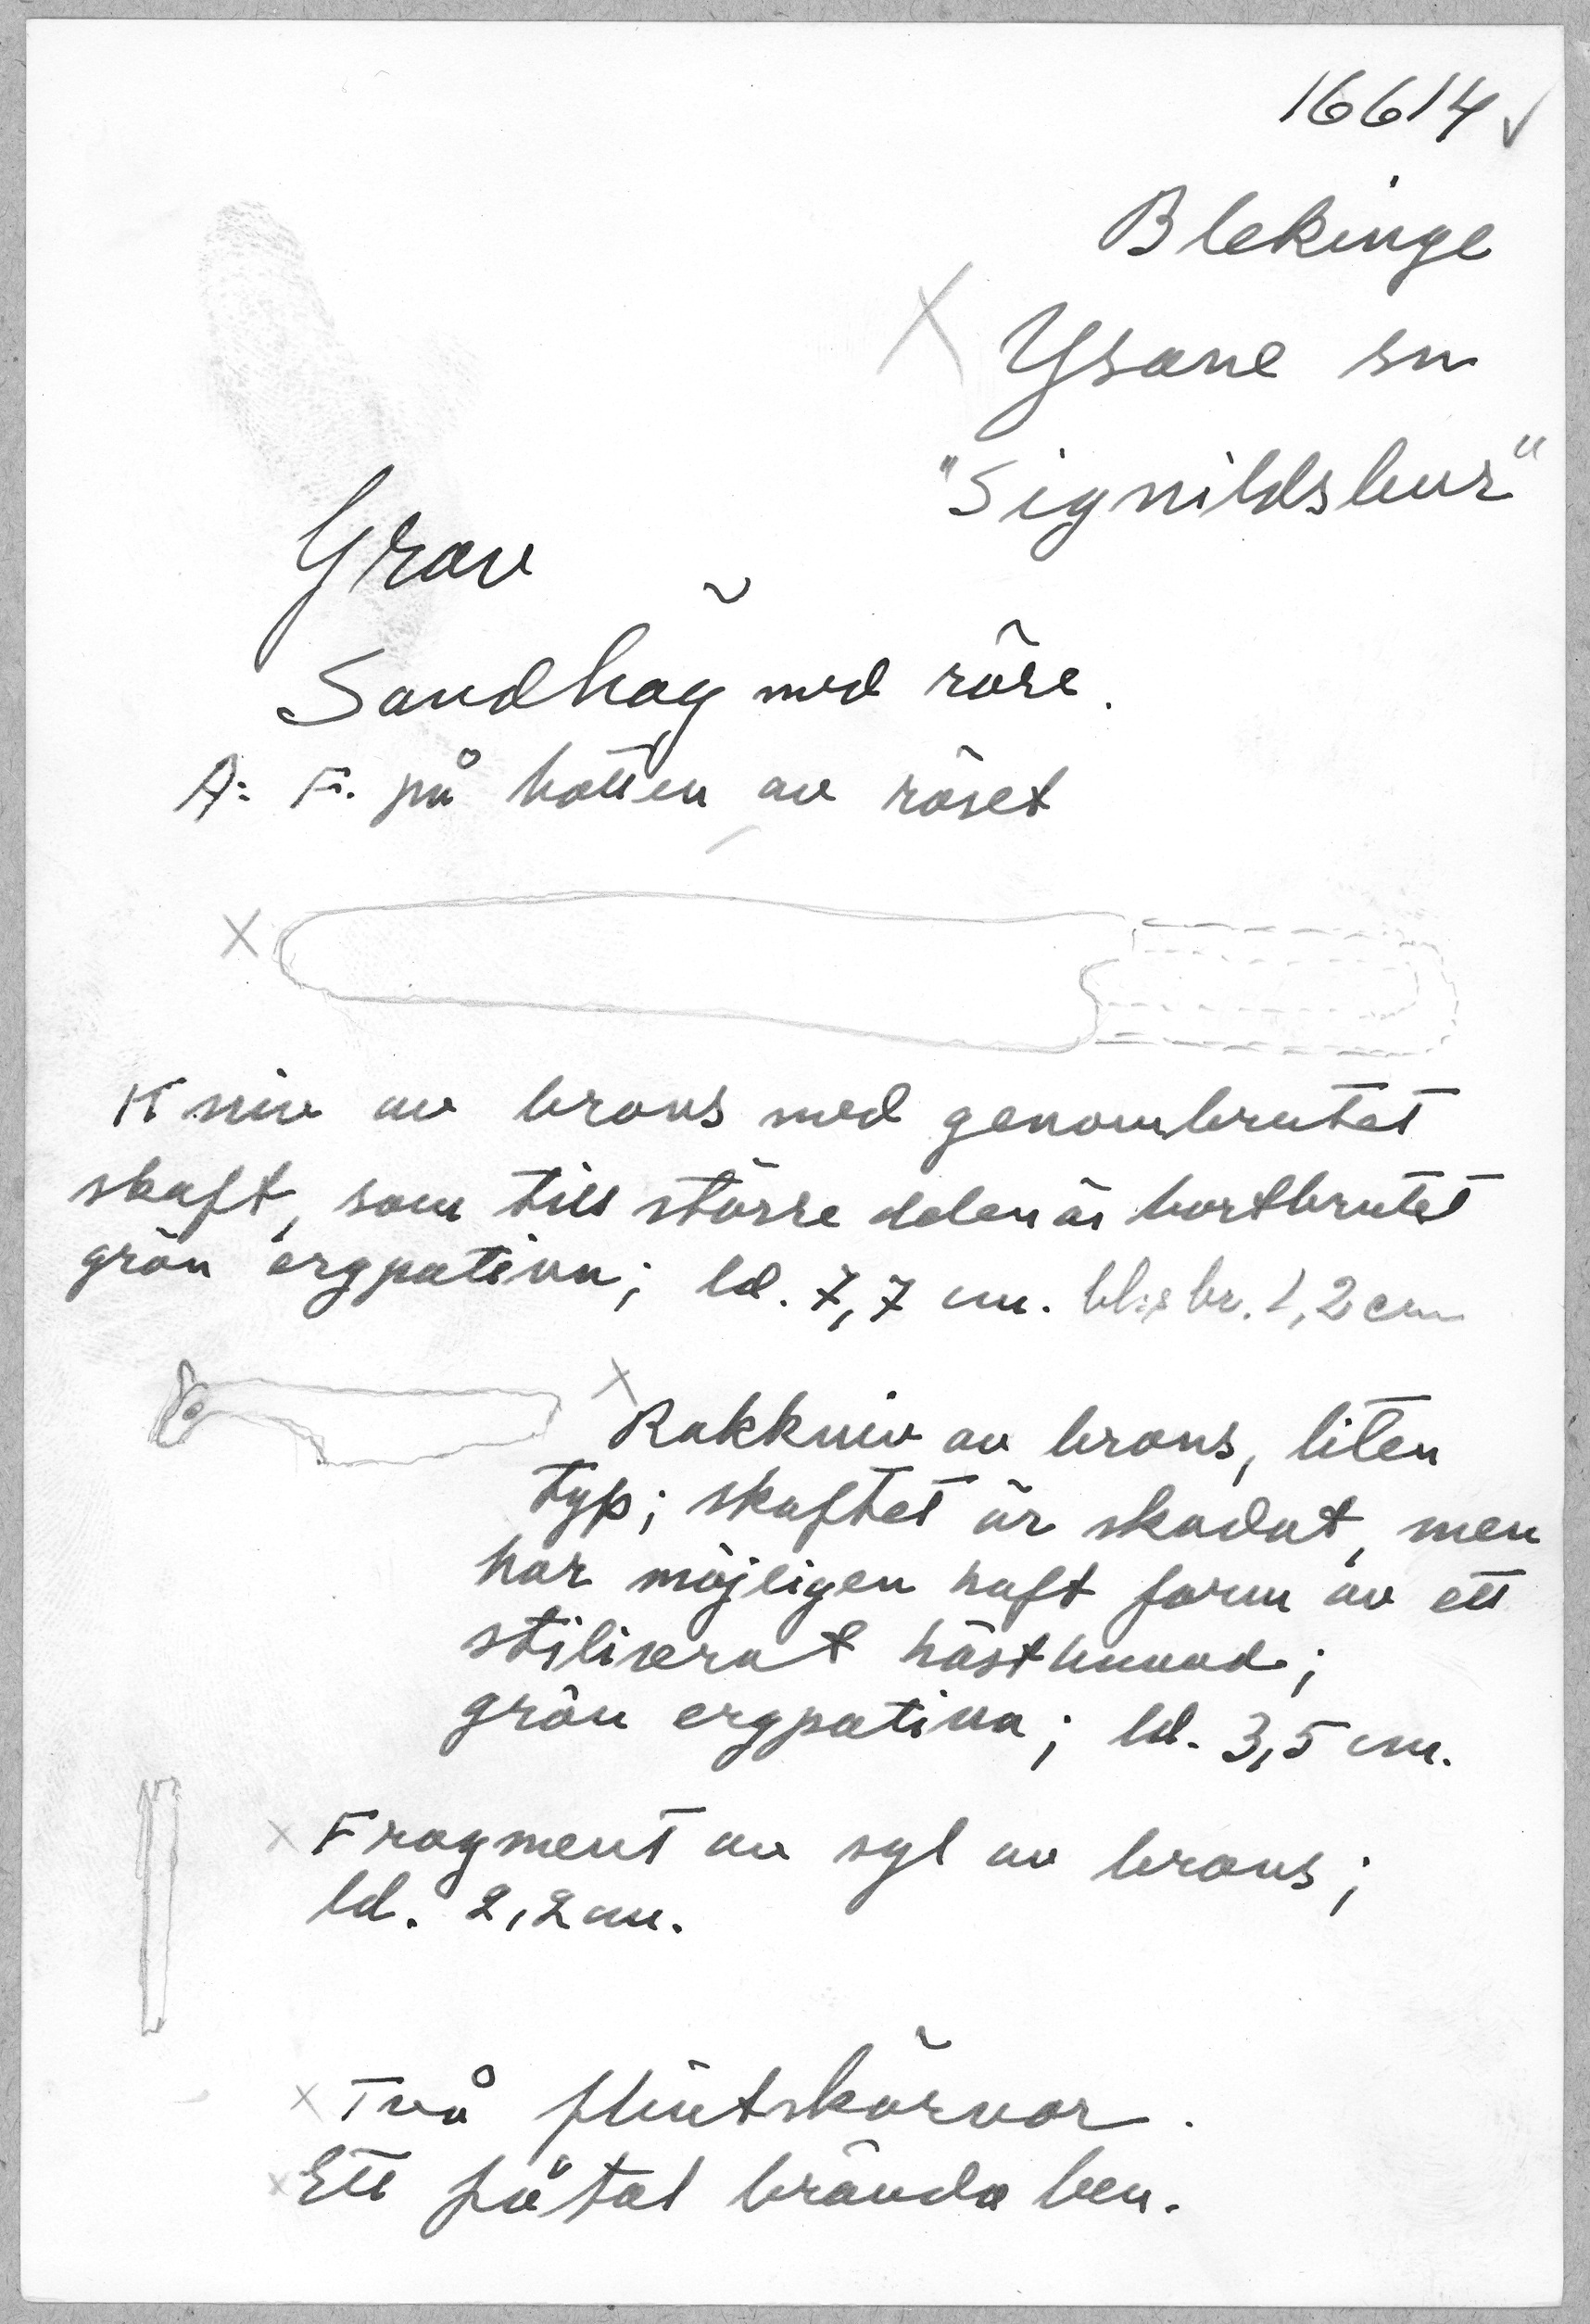 16614
Blekinge
Ysane sn
"Signildsbur"
Grav
Sandhög med röse.
A: F. på botten av röset
Kniv av brons med genombrutet
skaft, som till större delen är bortbrutet
grön ergpatina; ld. 7,7 cm. br. 1,2 cm
Rakkniv av brons, liten
typ; skaftet är skadat, men
har möjligen haft form av ett
stiliserat hästhuvud;
grön ergpatina; ld. 3,5 cm.
Fragment av syl av brons;
ld. 2,2 cm.
Två flintskärvor.
Ett fåtal brända ben.